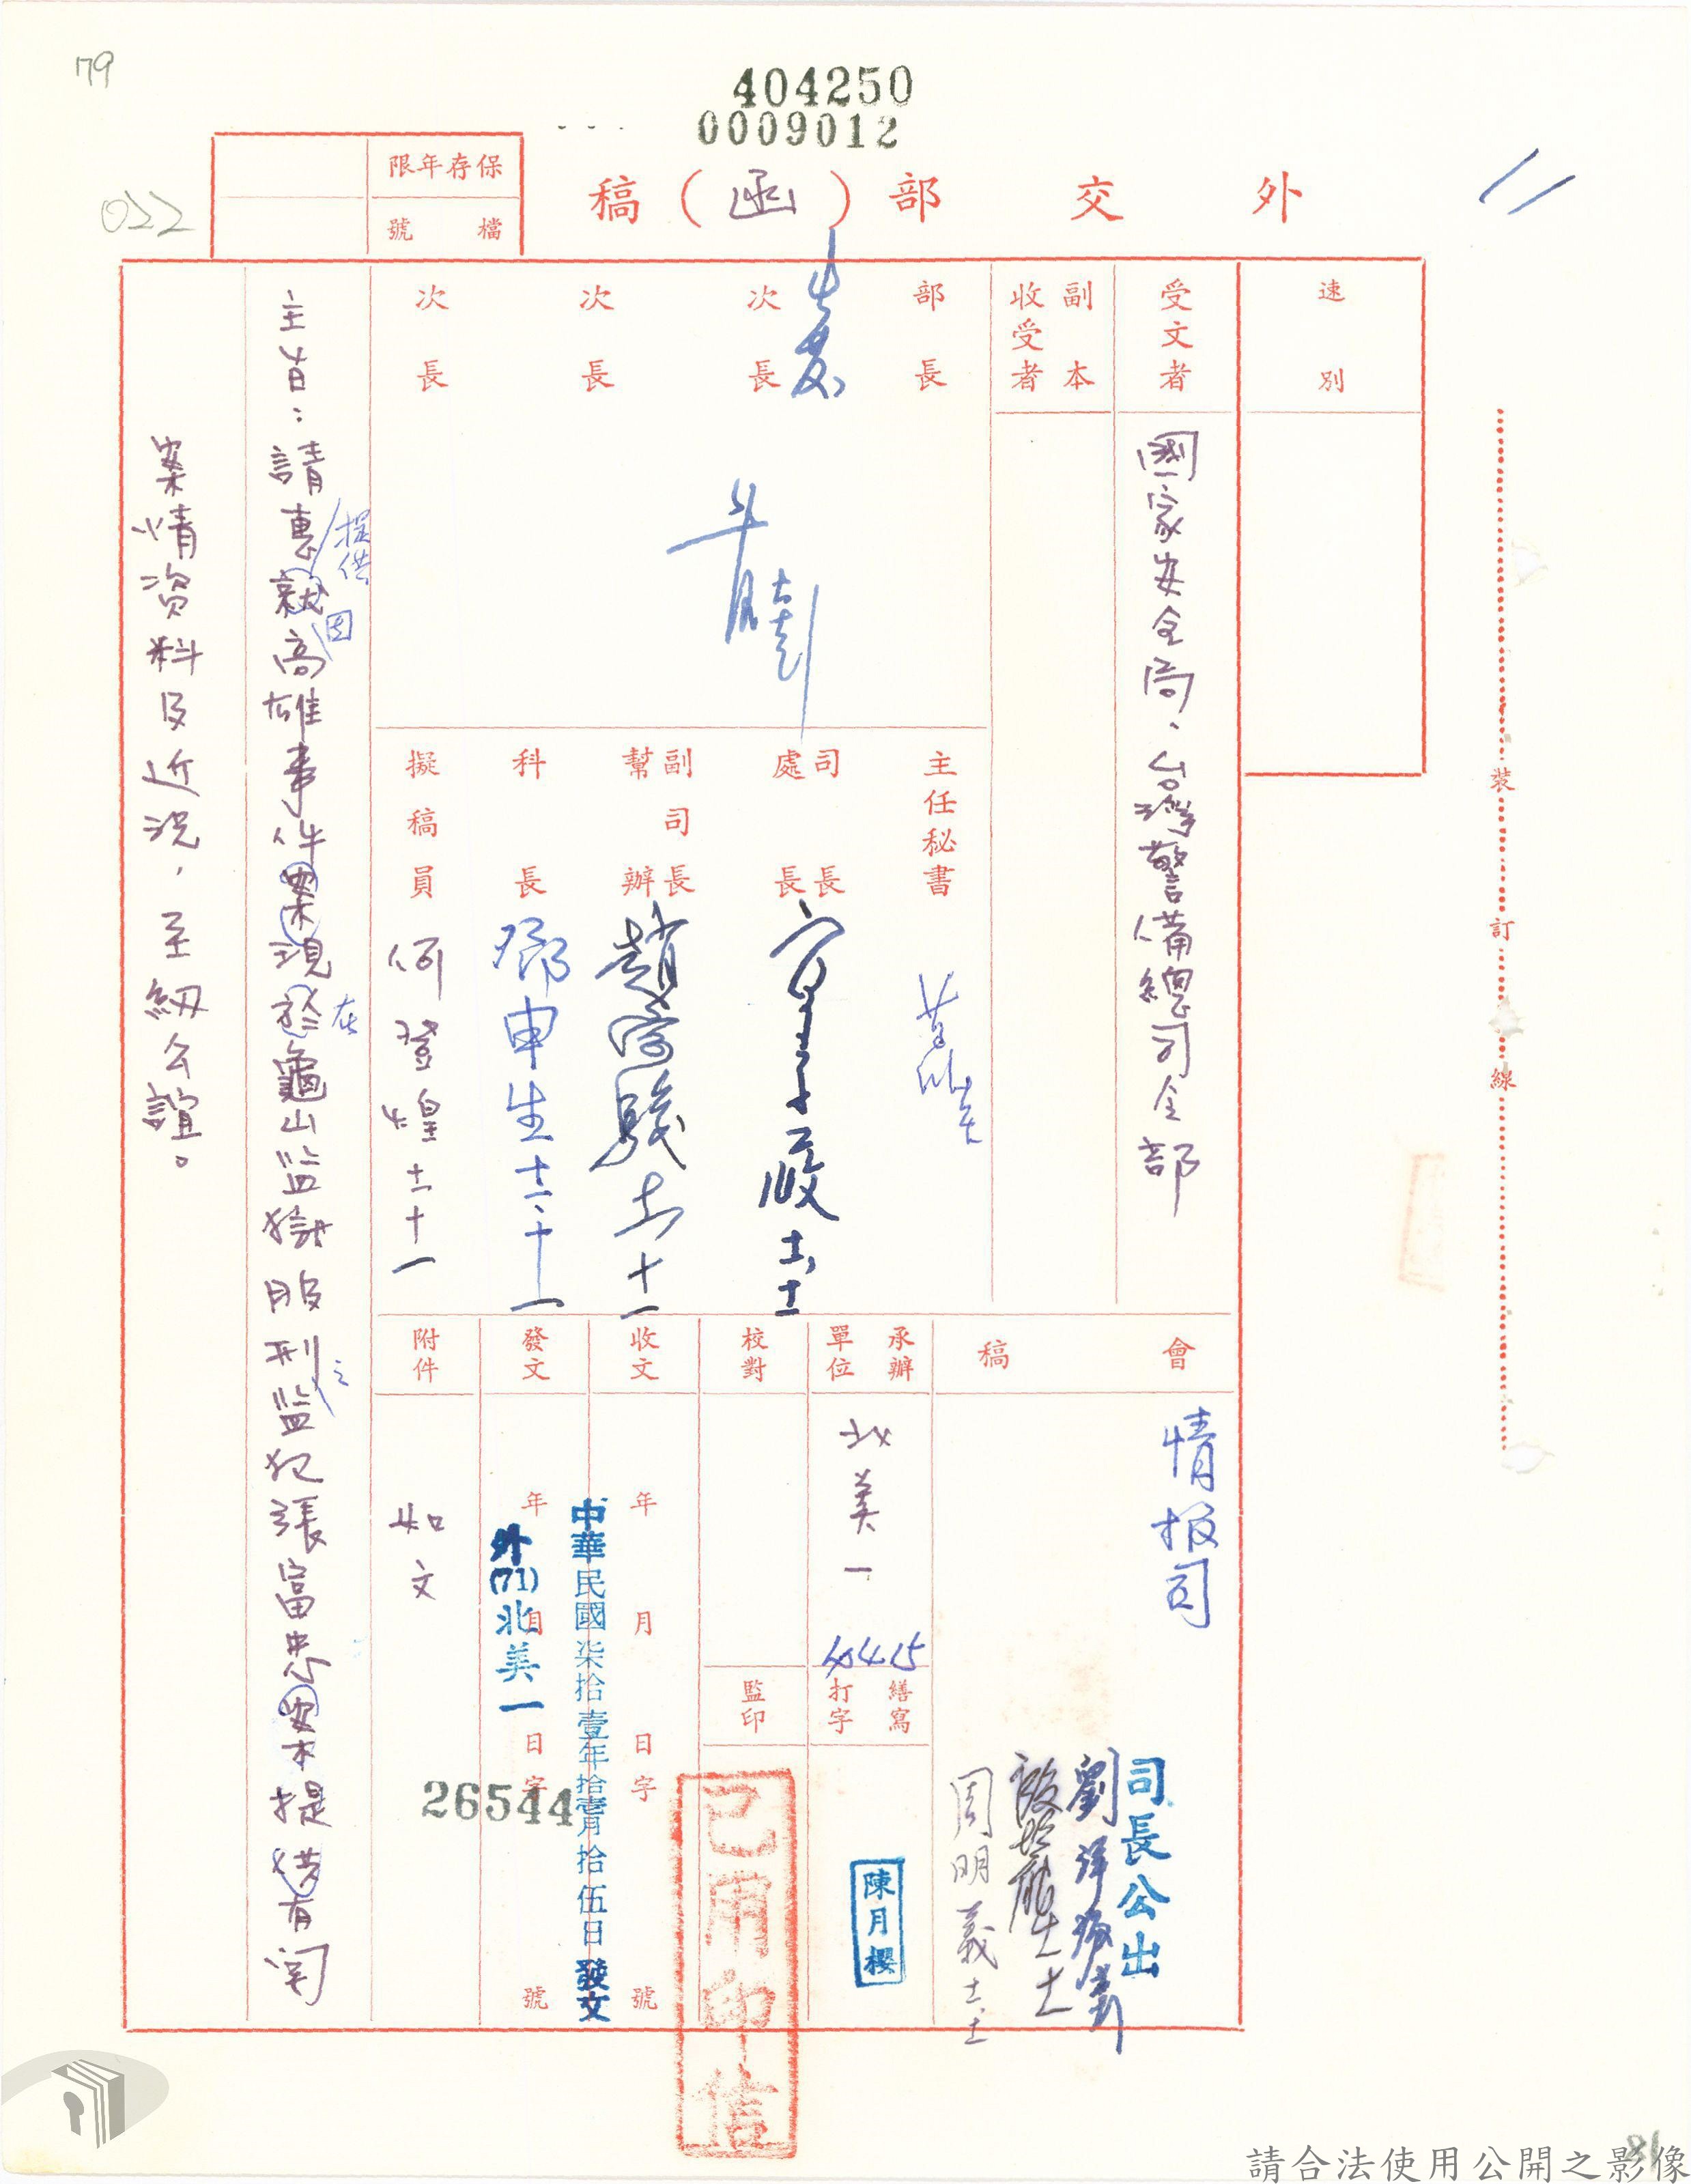 179
404250
0009012
022
保存年限
檔號
外交部（函）稿
速別
受文者
國家安全局、台灣警備總司令部
副本
收受者
部長
次長
次長
次長
主任秘書
司長
處長
副司長
幫辦
科長
鄧申生 十一、十一
擬稿員
何登煌 十一 十一
會稿
情报司
司長公出
周明義
承辦單位
北美一
445
繕寫
打字
陳月櫻
校對
監印
已用印信
收文
年 月 日 字 號
中華民國柒拾壹年拾壹月拾伍日發文
發文
年 月 日 字 號
外(71)北美一
26544
附件
如文
主旨：請惠就高雄事件案現於龜山监獄服刑监犯張富忠案本提供有関
提供
因
在
之
案情資料及近況，至紉公誼。
裝
訂
線
81
請合法使用公開之影像